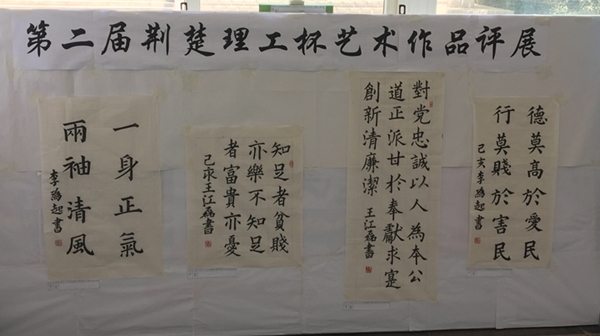 第二届荆楚理工杯艺术作品评展
一身正氣
兩袖清風
知足者貧賤
亦樂不知足
者富貴亦憂
己亥王江磊書
對党忠誠以人為本公
道正派甘於奉獻求寔
創新清廉潔 王江磊書
德莫高於愛民
行莫賤於害民